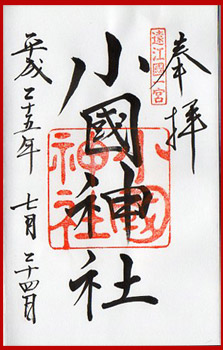 奉拝
遠江國一宮
小國神社
小國神社
平成二十五年 七月 二十四日